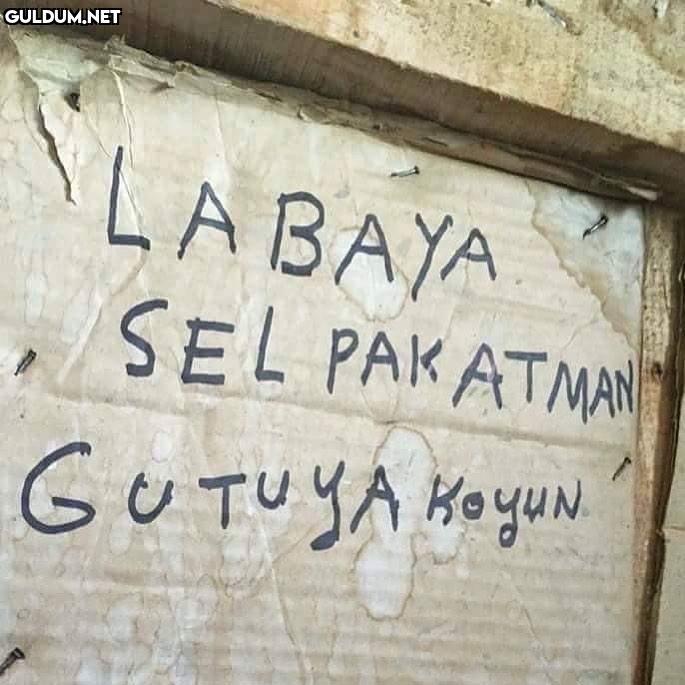 GULDUM.NET
LABAYA
SEL PAK ATMAN
GUTUYA KOYUN